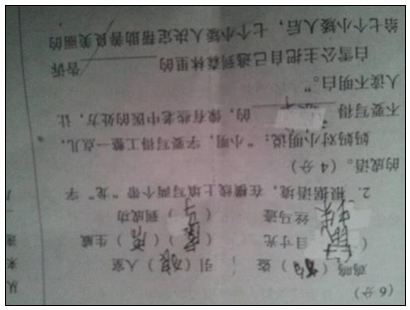 (6分)
鸡鸣(狗)盗 引(狼)入室
( )目寸光 ( )( )生威
丝马迹 (马)到成功
2. 根据语境，在横线上填写两个带“龙”字
的成语。(4分)
妈妈对小明说：“小明，字要写得工整一点儿，
不要写得 的，像有些老中医的处方，让
人读不明白。”
白雪公主把遇到森林里的 告诉
给七个小矮人后，七个小矮人决定帮助善良美丽的